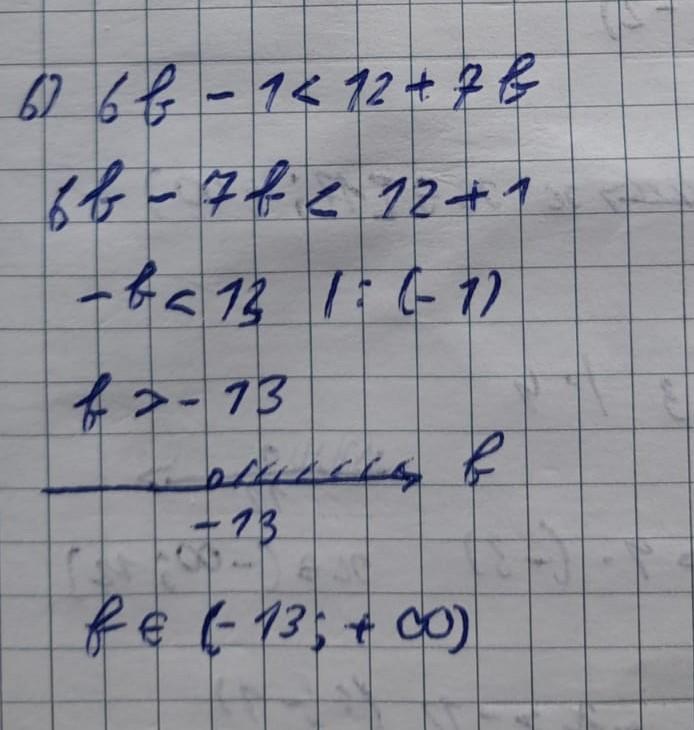 б) 6b - 1 < 12 + 7b
6b - 7b < 12 + 1
-b < 13 | : (-1)
b > - 13
b
-13
b ∈ (- 13; + ∞)